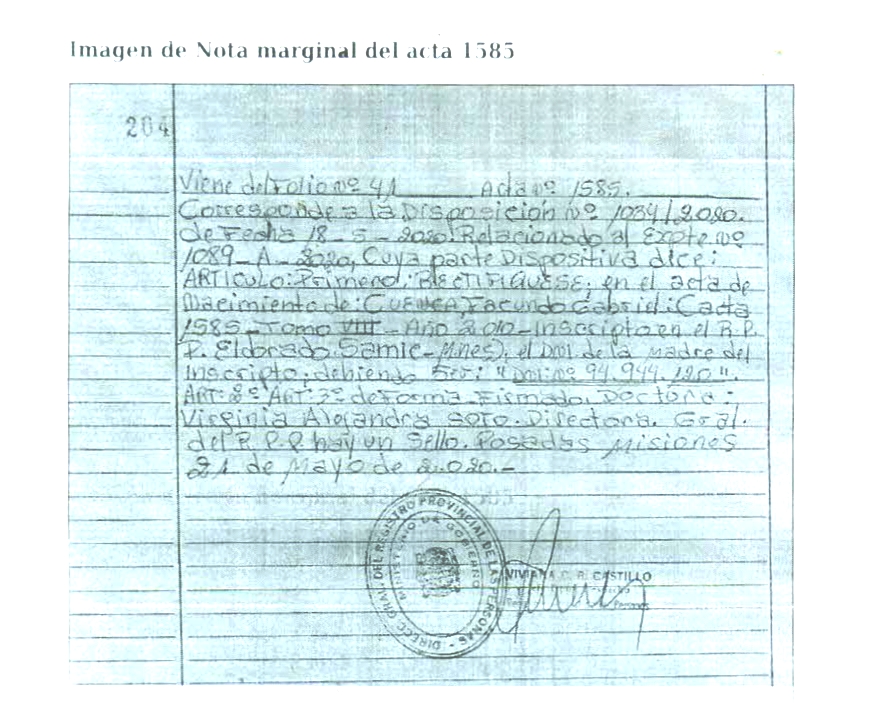 Imagen de Nota marginal del acta 1585
204
Viene del Folio nº 41 Acta nº 1585.
Corresponde a la Disposición Nº 1034/2020.
de Fecha 18-5-2020. Relacionado al Expte nº
1089-A-2020, Cuya parte Dispositiva dice:
ARTICULO: Primero: RECTIFIQUESE; en el acta de
Nacimiento de: CUENCA, Facundo Gabriel: Cacta
1585-Tomo VIII-Año 2010-Inscripto en el R.P.
P. Eldorado. Samic-Mnes), el DNI. de la Madre del
Inscripto, debiendo Ser: "DNI: Nº 94.944.120".
ART: 2º ART: 3º de Forma. Firmado. Doctora:
Virginia Alejandra SOTO. Directora. Gral.
del R.P.P. hay un Sello. Posadas Misiones
21 de Mayo de 2.020.-
DIRECC. GRAL. DEL REGISTRO PROVINCIAL DE LAS PERSONAS
MINISTERIO DE GOBIERNO
VIVIANA C. R. CASTILLO